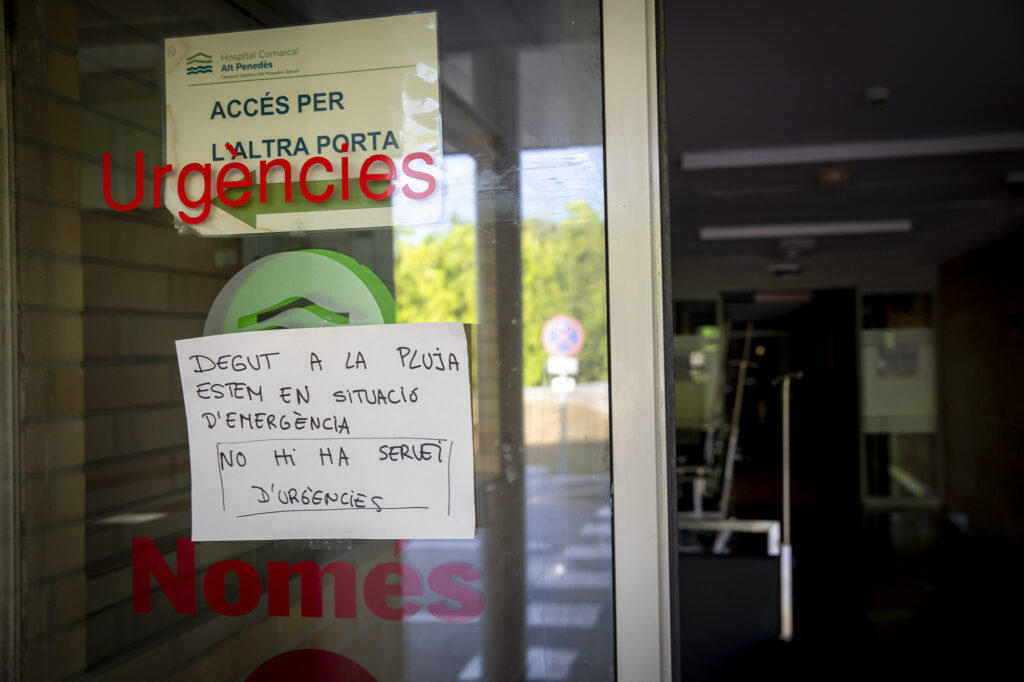 Hospital Comarcal
Alt Penedès
Consorci Sanitari Alt Penedès-Garraf
ACCÉS PER
L'ALTRA PORTA
Urgències
DEGUT A LA PLUJA
ESTEM EN SITUACIÓ
D'EMERGÈNCIA
NO HI HA SERVEI
D'URGÈNCIES
Només